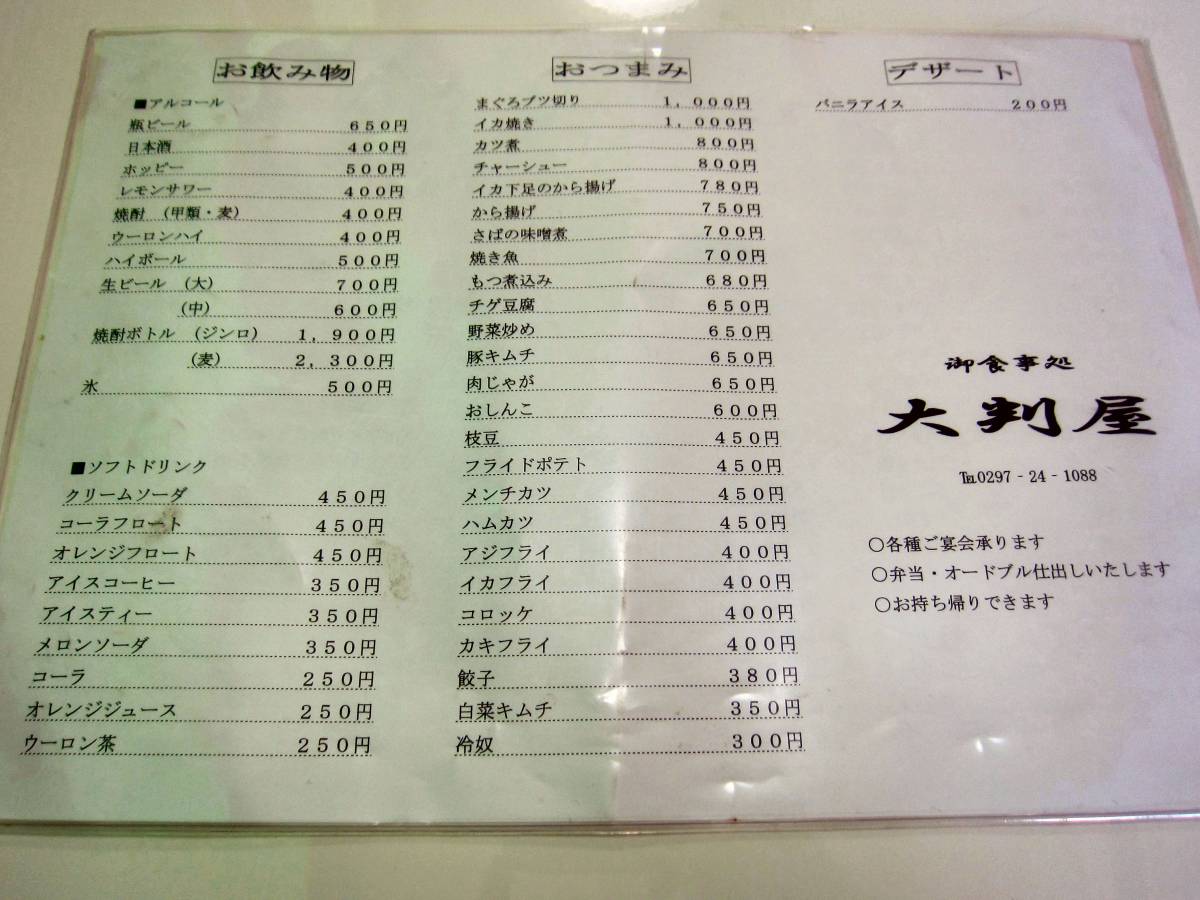 お飲み物
■アルコール
瓶ビール 650円
日本酒 400円
ホッピー 500円
レモンサワー 400円
焼酎 (甲類・麦) 400円
ウーロンハイ 400円
ハイボール 500円
生ビール (大) 700円
(中) 600円
焼酎ボトル (ジンロ) 1,900円
(麦) 2,300円
氷 500円
■ソフトドリンク
クリームソーダ 450円
コーラフロート 450円
オレンジフロート 450円
アイスコーヒー 350円
アイスティー 350円
メロンソーダ 350円
コーラ 250円
オレンジジュース 250円
ウーロン茶 250円
おつまみ
まぐろブツ切り 1,000円
イカ焼き 1,000円
カツ煮 800円
チャーシュー 800円
イカ下足のから揚げ 780円
から揚げ 750円
さばの味噌煮 700円
焼き魚 700円
もつ煮込み 680円
チゲ豆腐 650円
野菜炒め 650円
豚キムチ 650円
肉じゃが 650円
おしんこ 600円
枝豆 450円
フライドポテト 450円
メンチカツ 450円
ハムカツ 450円
アジフライ 400円
イカフライ 400円
コロッケ 400円
カキフライ 400円
餃子 380円
白菜キムチ 350円
冷奴 300円
デザート
バニラアイス 200円
御食事処
大判屋
℡0297-24-1088
○各種ご宴会承ります
○弁当・オードブル仕出しいたします
○お持ち帰りできます